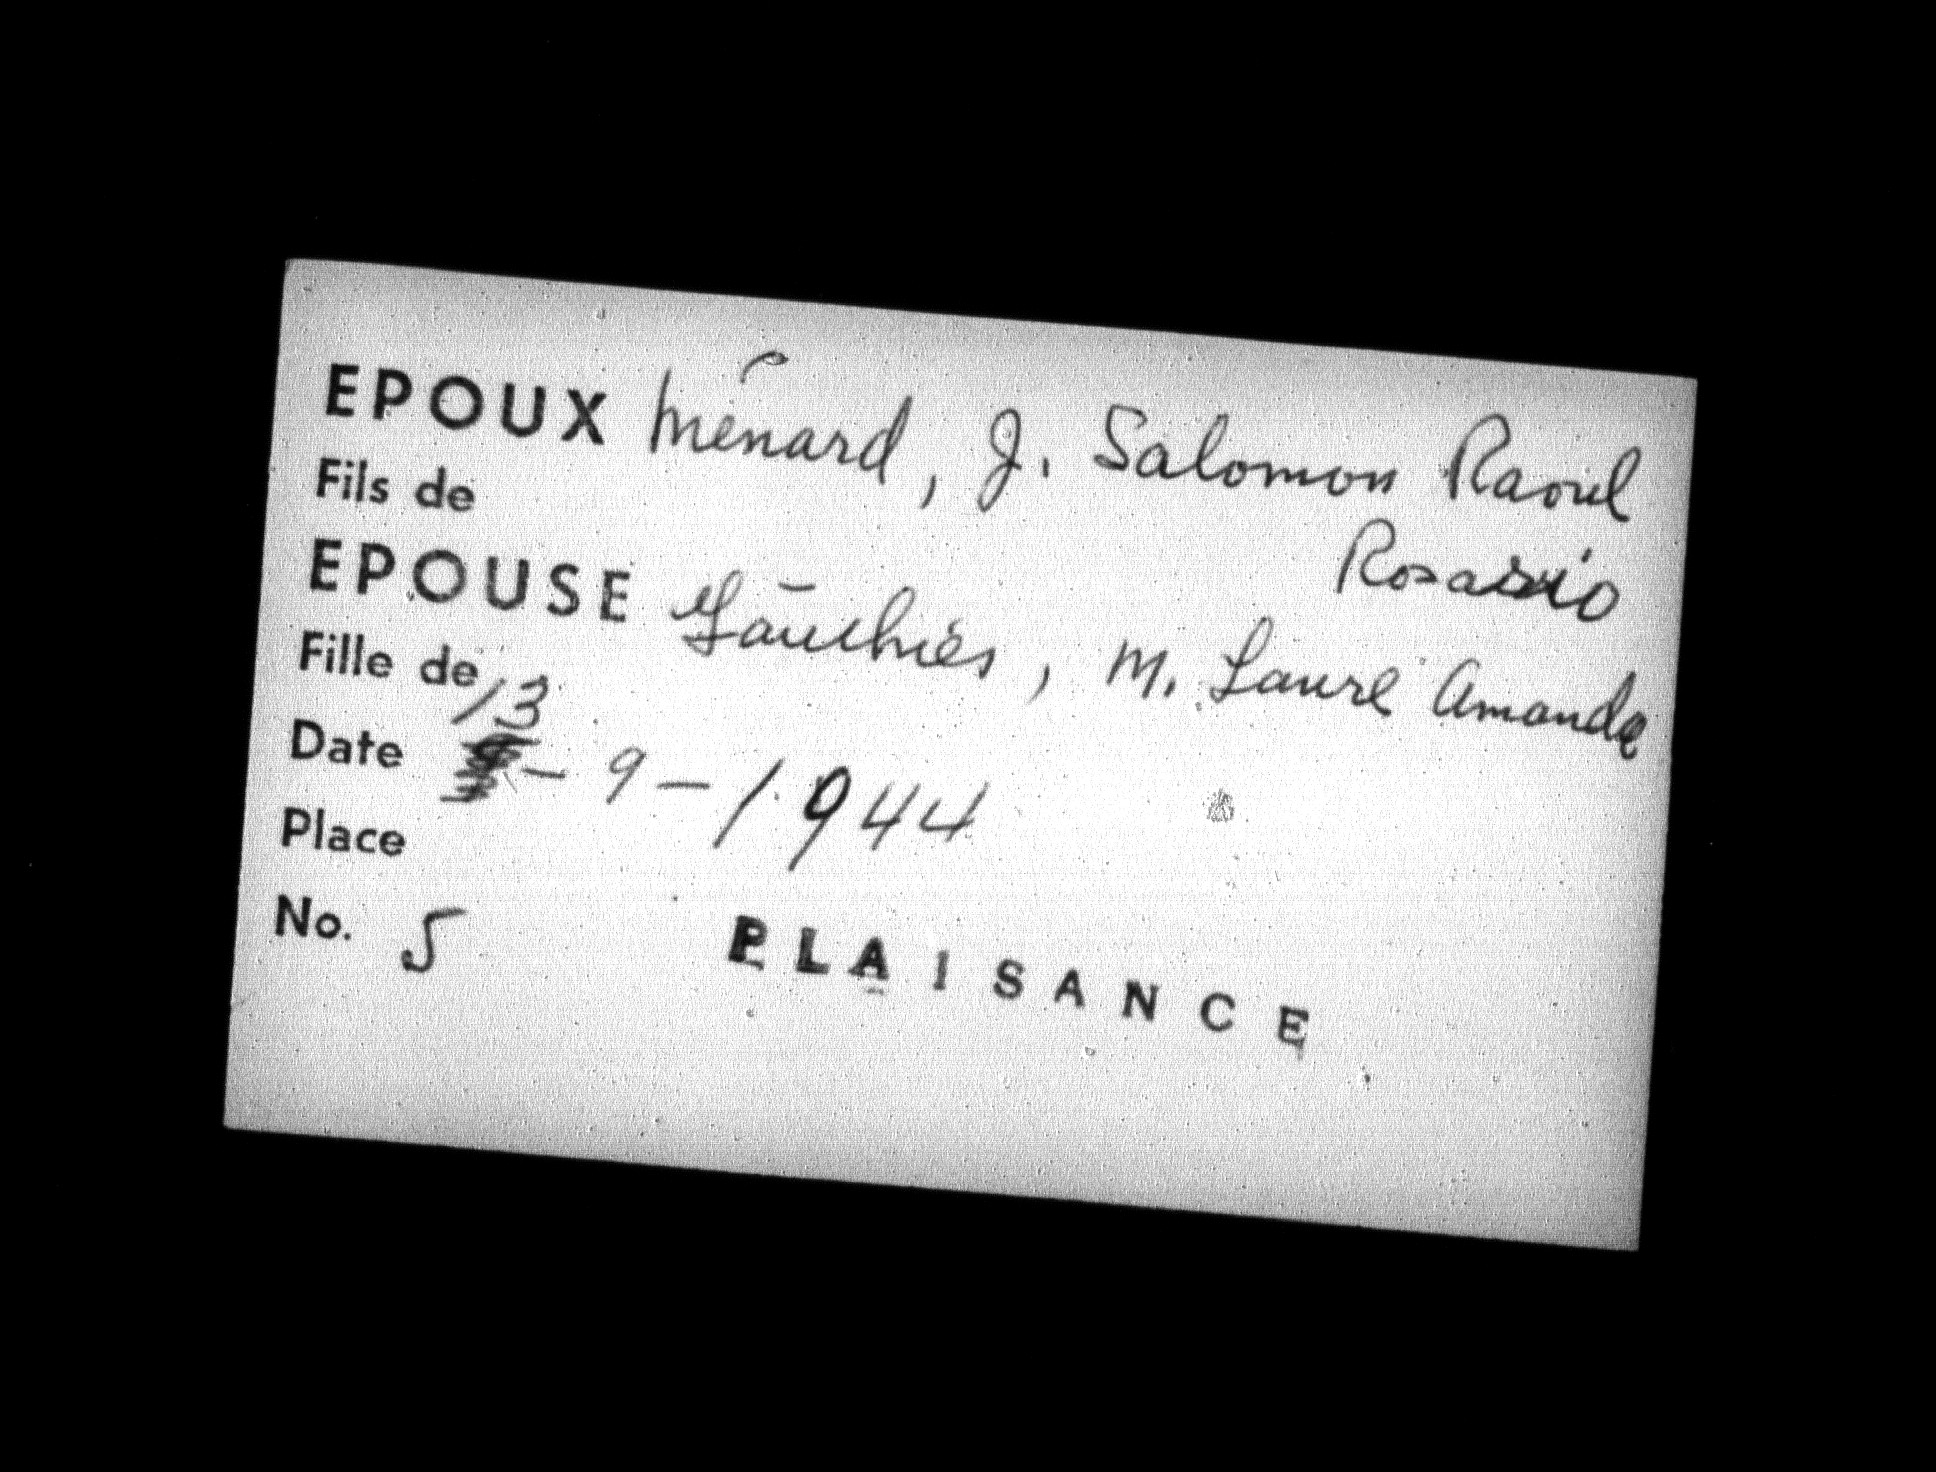 EPOUX Ménard, J. Salomon Raoul
Rosario
Fils de
EPOUSE Gauthier, M. Laure Amanda
Fille de
13
Date - 9 - 1944
Place
No. 5 PLAISANCE